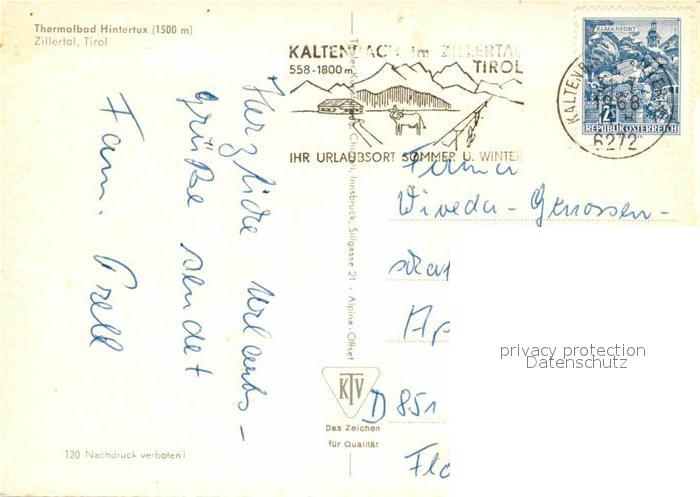 Thermalbad Hintertux (1500 m)
Zillertal, Tirol
Herzliche Urlaubs-
grüße sendet
Fam. Prell
120 Nachdruck verboten!
KALTENBACH im ZILLERTAL
558-1800 m TIROL
IHR URLAUBSORT SOMMER U. WINTER
KLAGENFURT
2
REPUBLIK ÖSTERREICH
KALTENBACH
1968
6272
Innsbruck, Sillgasse 21 · Alpina-Offset
KTV
Das Zeichen
für Qualität
Firma
Wiveda-Genossen-
Ap
D 851
privacy protection
Datenschutz